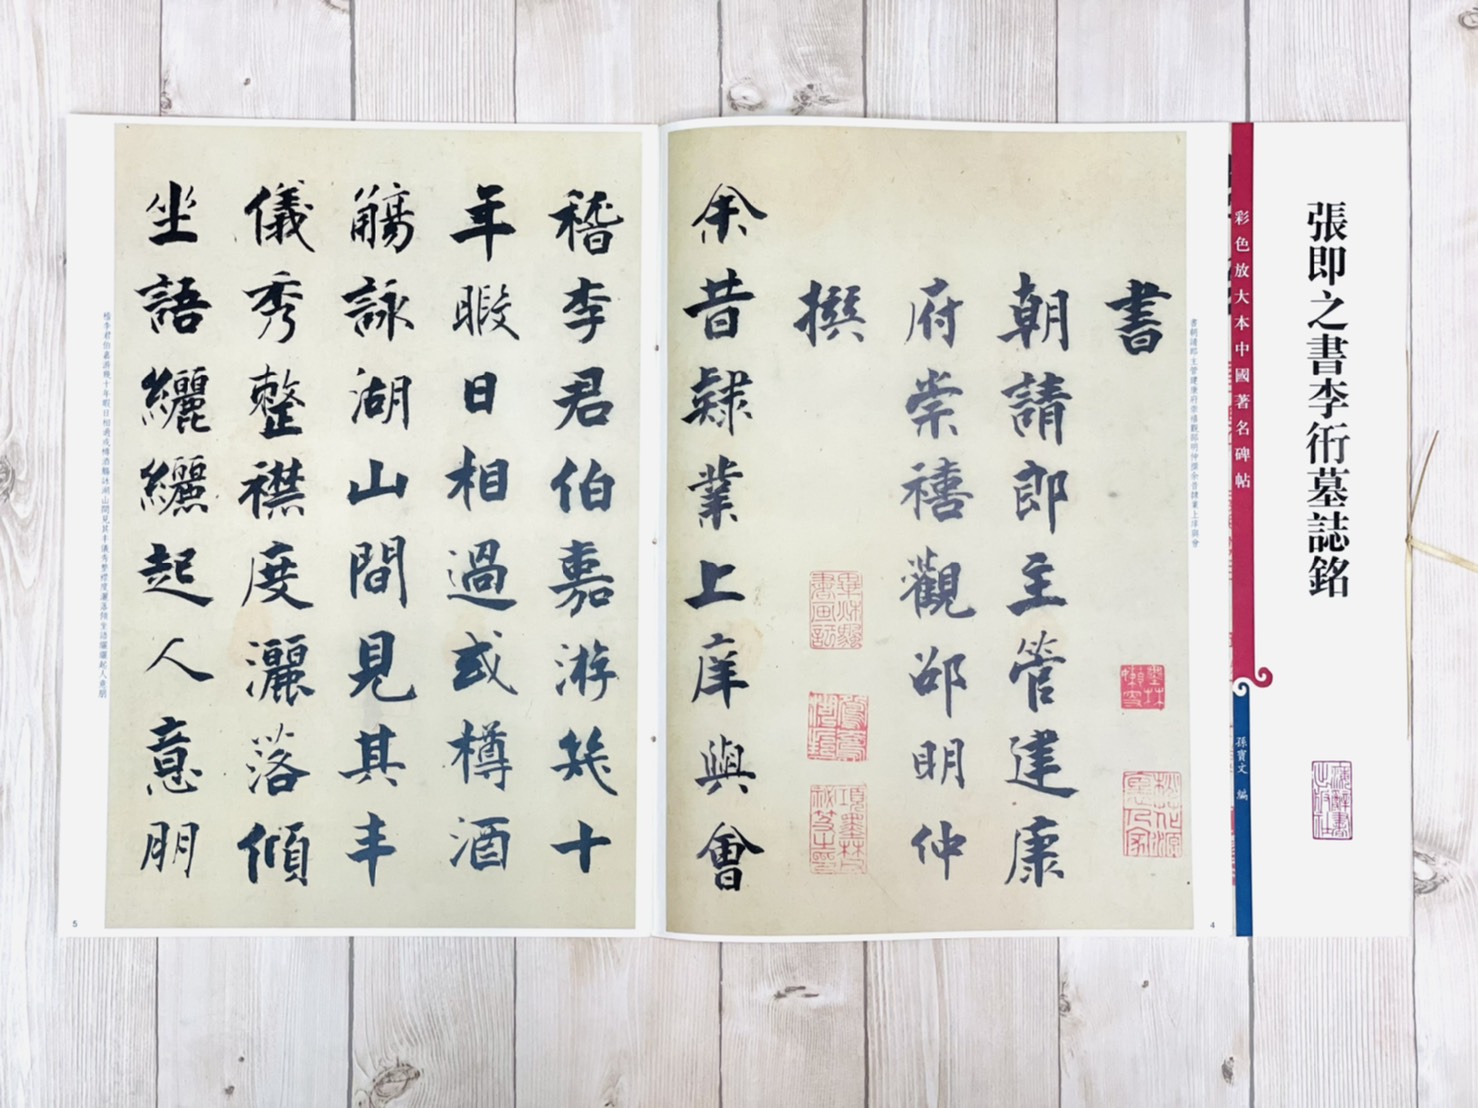 張即之書李衎墓誌銘
彩色放大本中國著名碑帖
孫寶文 編
書朝請郎主管建康府崇禧觀邵明仲撰余昔隸業上庠與會
書
朝請郎主管建康
府崇禧觀邵明仲
撰
余昔隸業上庠與會
墨林嬾叟
桃花源裏人家
4
稽李君伯嘉游幾十
年暇日相過或樽酒
觴詠湖山間見其丰
儀秀整襟度灑落傾
坐語纚纚起人意朋
稽李君伯嘉游幾十年暇日相過或樽酒觴詠湖山間見其丰儀秀整襟度灑落傾坐語纚纚起人意朋
5